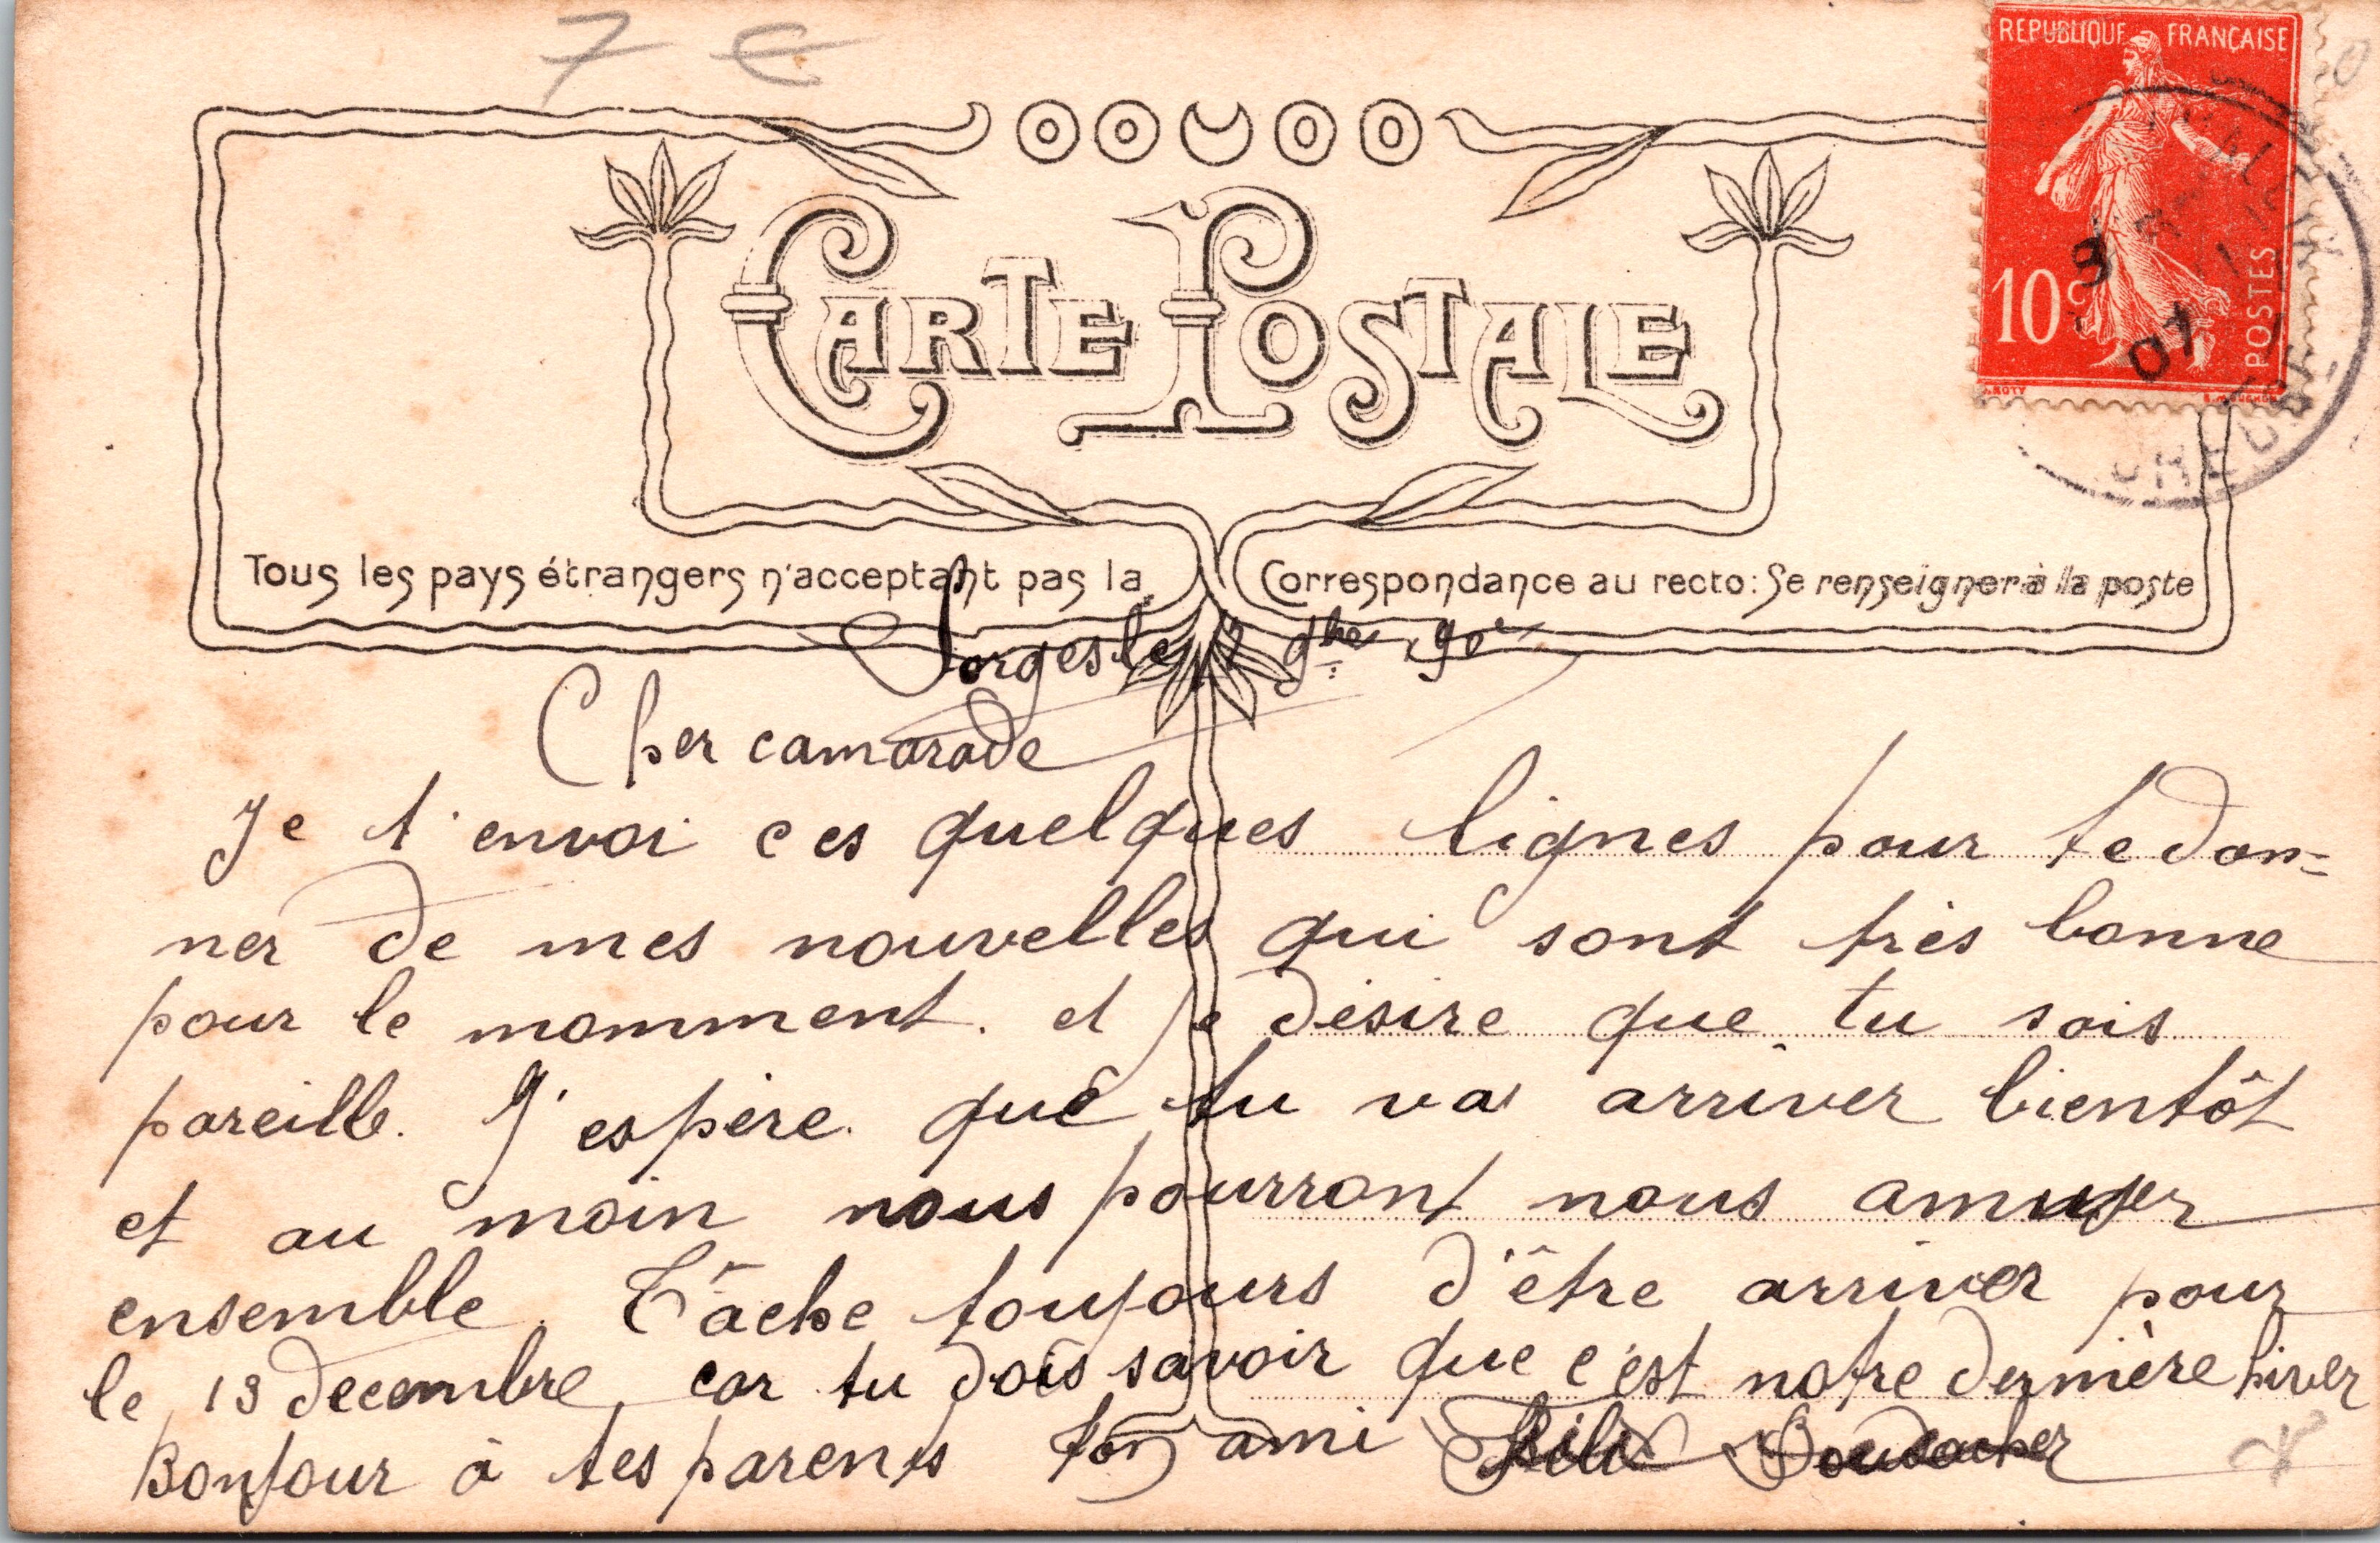 7 €
REPUBLIQUE FRANÇAISE
10c
POSTES
O.ROTY
E.MOUCHON
3
07
CARTE POSTALE
Tous les pays étrangers n'acceptant pas la Correspondance au recto: Se renseigner à la poste
Sorges le 2 9bre 190
Cher camarade
Je t'envoi ces quelques lignes pour te don=
ner de mes nouvelles qui sont très bonne
pour le momment. et je désire que tu sois
pareille. J'espère. que tu vas arriver bientôt
et au moin nous pourront nous amuser
ensemble. Tâche toujours d'être arriver pour
le 13 decembre car tu dois savoir que c'est notre dernière hiver
Bonjour à tes parents ton ami